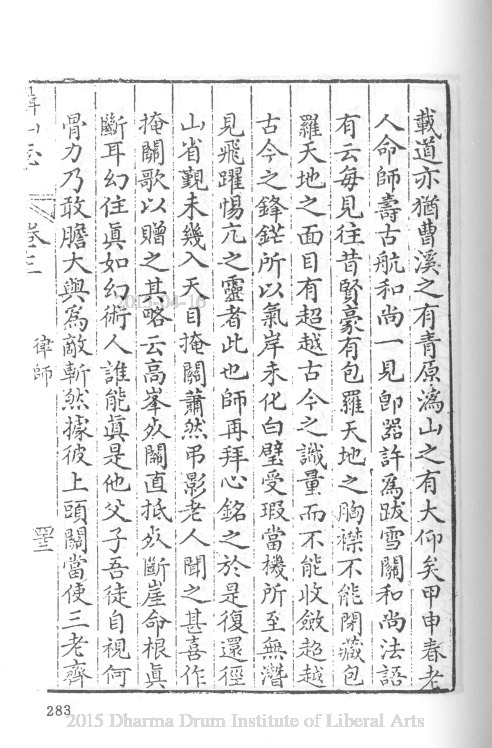 載道亦猶曹溪之有青原溈山之有大仰矣甲申春老
人命師壽古航和尚一見卽器許為跋雪關和尚法語
有云每見往昔賢豪有包羅天地之胸襟不能閉藏包
羅天地之面目有超越古今之識量而不能收斂超越
古今之鋒鋩所以氣岸未化白璧受瑕當機所至無潛
見飛躍惕亢之靈者此也師再拜心銘之於是復還徑
山省覲未幾入天目掩關蕭然弔影老人聞之甚喜作
掩關歌以贈之其略云高峯死關直抵死斷崖命根真
斷耳幻住真如幻術人誰能真是他父子吾徒自視何
骨力乃敢膽大與為敵斬然據彼上頭關當使三老齊
山志
卷三
律師
283
2015 Dharma Drum Institute of Liberal Arts